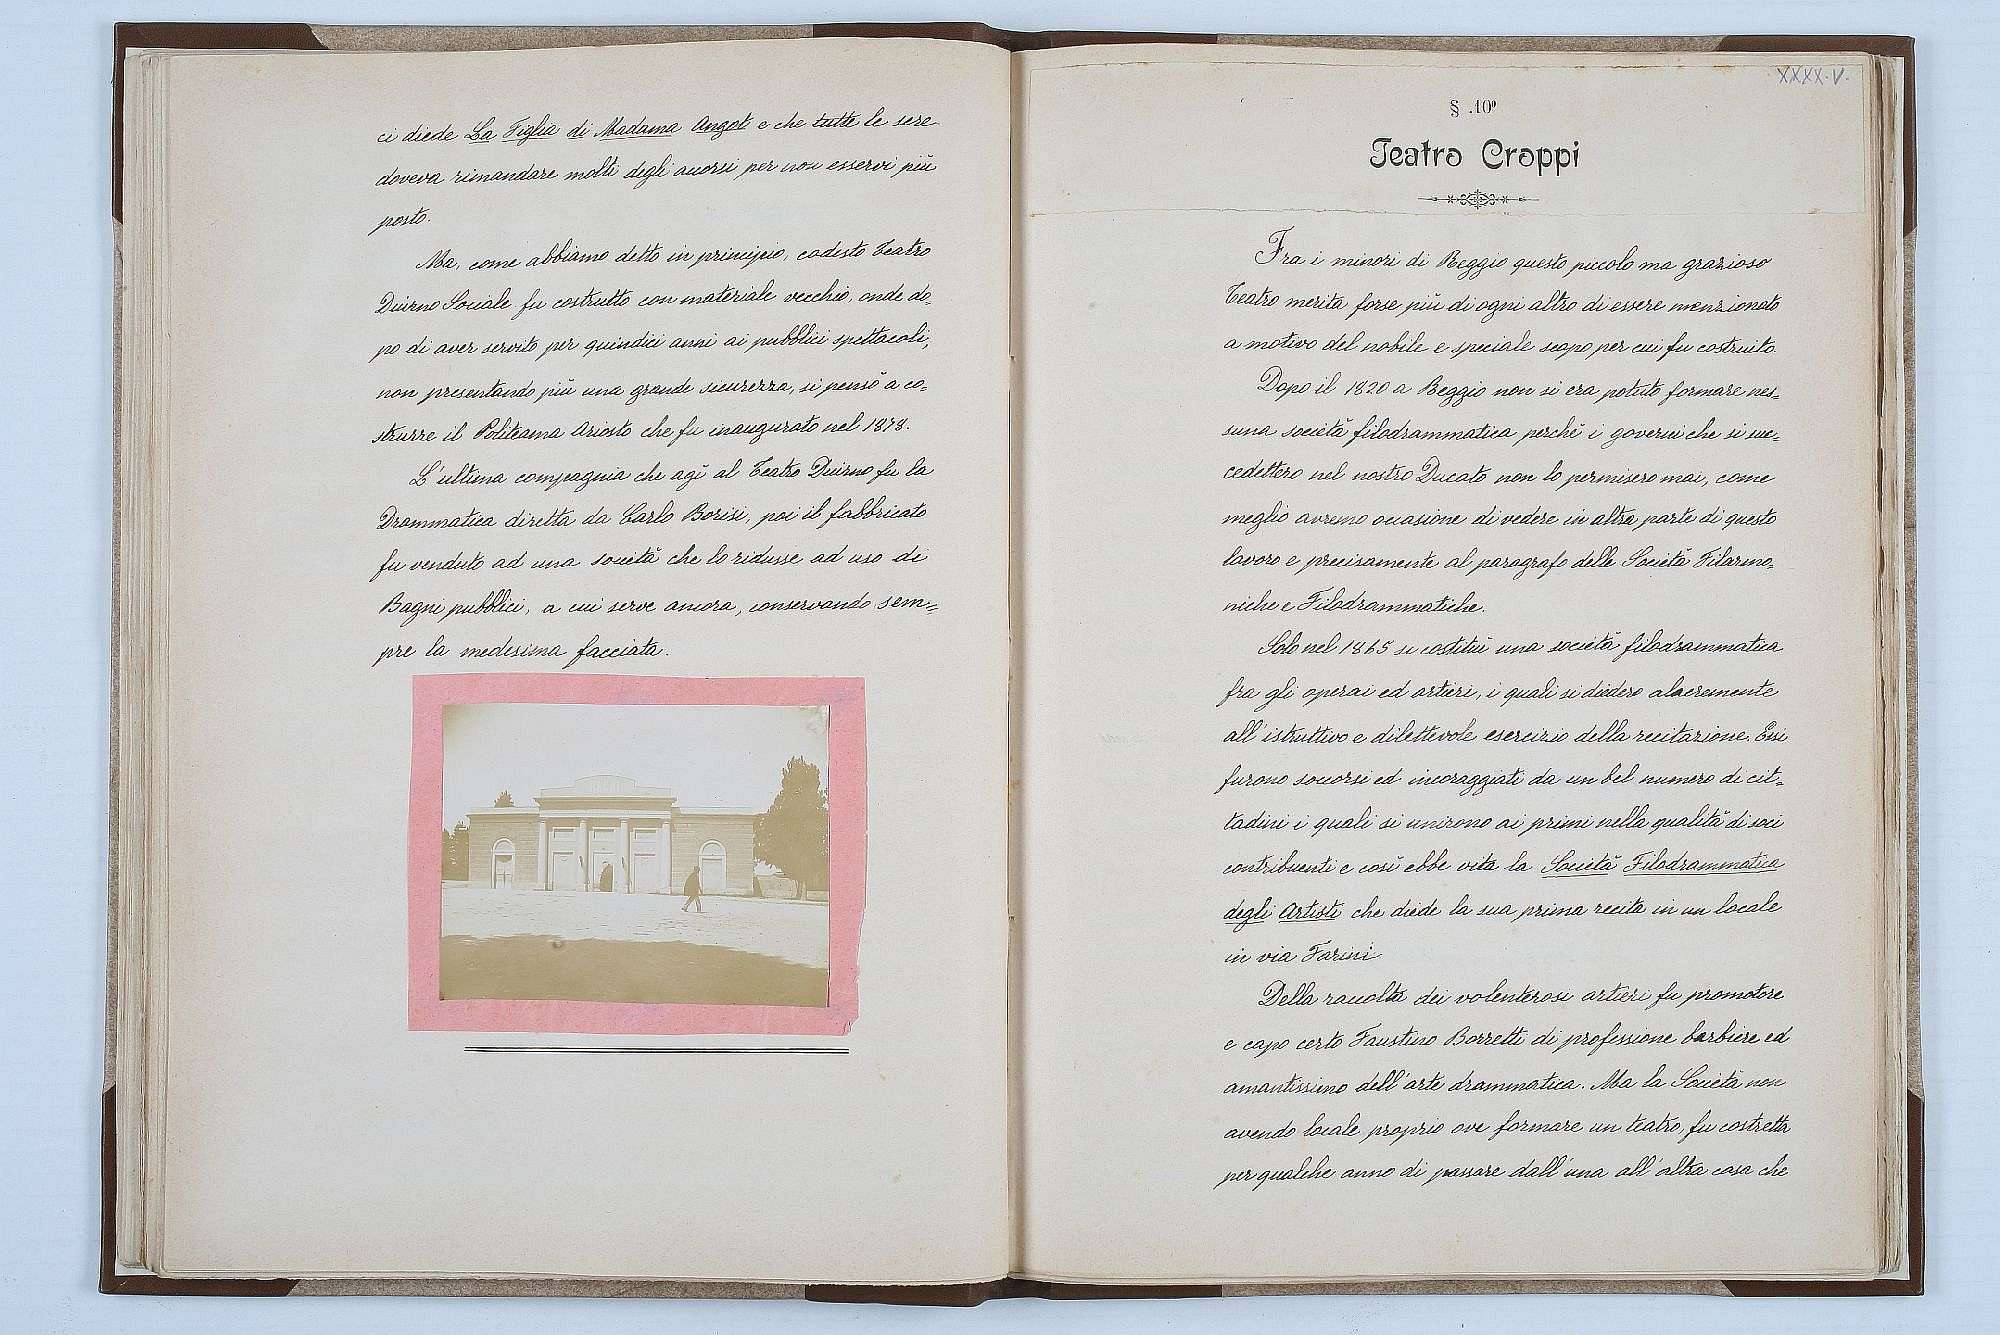 ci diede La Figlia di Madama Angot e che tutte le sere
doveva rimandare molti degli accorsi per non esservi più
posto.
Ma, come abbiamo detto in principio, codesto Teatro
Diurno Sociale fu costrutto con materiale vecchio, onde do-
po di aver servito per quindici anni ai pubblici spettacoli,
non presentando più una grande sicurezza, si pensò a co-
strurre il Politeama Ariosto che fu inaugurato nel 1878.
L'ultima compagnia che agì al Teatro Diurno fu la
Drammatica diretta da Carlo Borisi, poi il fabbricato
fu venduto ad una società che lo ridusse ad uso di
Bagni pubblici, a cui serve ancora, conservando sem=
pre la medesima facciata.
XXXX.V.
§ .10º
Teatro Croppi
Fra i minori di Reggio questo piccolo ma grazioso
Teatro merita forse più di ogni altro di essere menzionato
a motivo del nobile e speciale scopo per cui fu costruito.
Dopo il 1820 a Reggio non si era potuto formare nes-
suna società filodrammatica perchè i governi che si suc-
cedettero nel nostro Ducato non lo permisero mai, come
meglio avremo occasione di vedere in altra parte di questo
lavoro e precisamente al paragrafo delle Società Filarmo-
niche e Filodrammatiche.
Solo nel 1865 si costituì una società filodrammatica
fra gli operai ed artieri, i quali si diedero alacremente
all'istruttivo e dilettevole esercizio della recitazione. Essi
furono soccorsi ed incoraggiati da un bel numero di cit-
tadini i quali si unirono ai primi nella qualità di soci
contribuenti e così ebbe vita la Società Filodrammatica
degli Artisti che diede la sua prima recita in un locale
in via Farini
Della raccolta dei volenterosi artieri fu promotore
e capo certo Faustino Borretti di professione barbiere ed
amantissimo dell'arte drammatica. Ma la Società non
avendo locale proprio ove formare un teatro, fu costretta
per qualche anno di passare dall'una all'altra casa che